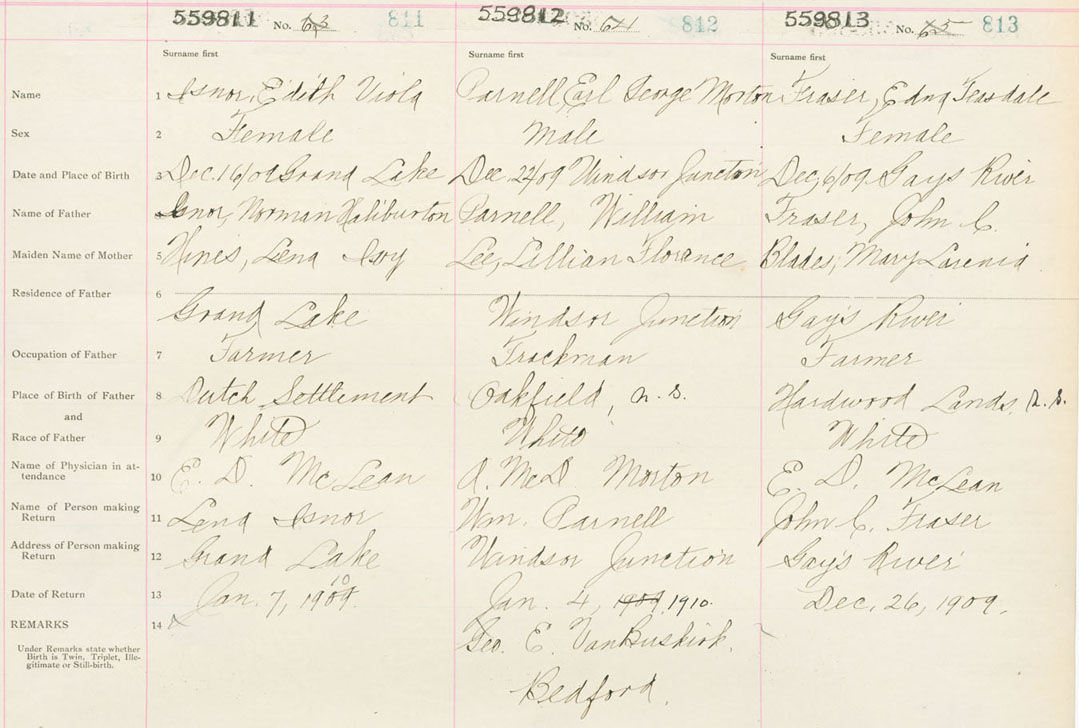 559811 No. 63 811 559812 No. 64 812 559813 No. 65 813
Surname first Surname first Surname first
Name 1 Isnor, Edith Viola Parnell, Erl George Morton Fraser, Edna Teasdale
Sex 2 Female Male Female
Date and Place of Birth 3 Dec. 16/09 Grand Lake Dec 22/09 Windsor Junction Dec, 6/09 Gays River
Name of Father 4 Isnor, Norman Haliburton Parnell, William Fraser, John C.
Maiden Name of Mother 5 Hines, Lena Ivy Lee, Lillian Florence Blades, Mary Larenia
Residence of Father 6
Grand Lake Windsor Junction Gay's River
Occupation of Father 7 Farmer Trackman Farmer
Place of Birth of Father 8 Dutch Settlement Oakfield, N.S. Hardwood Lands, N.S.
and
Race of Father 9 White White White
Name of Physician in at-
tendance 10 E. D. McLean A. McD. Morton E. D. McLean
Name of Person making
Return 11 Lena Isnor Wm. Parnell John C. Fraser
Address of Person making
Return 12 Grand Lake Windsor Junction Gay's River
Date of Return 13 Jan. 7, 1909. 10 Jan. 4, 1909, 1910. Dec. 26, 1909.
REMARKS 14
Geo. E. VanBuskirk.
Under Remarks state whether
Birth is Twin, Triplet, Ille-
gitimate or Still-birth.
Bedford.